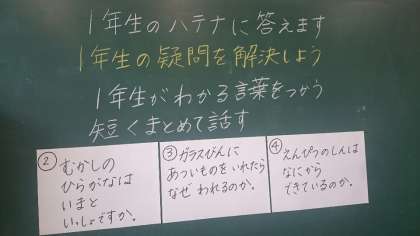 1年生のハテナに答えます
1年生の疑問を解決しよう
1年生がわかる言葉をつかう
短くまとめて話す
② むかしの
ひらがなは
いまと
いっしょですか。
③ ガラスびんに
あついものをいれたら
なぜ われるのか。
④ えんぴつのしんは
なにから
できているのか。